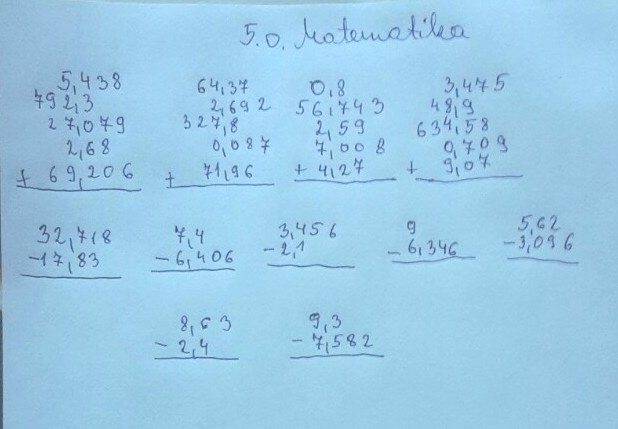 5.o. Matematika
5,438 64,37 0,8 3,475
792,3 2,692 56,743 48,9
27,079 327,8 2,59 634,58
2,68 0,087 7,008 0,709
+ 69,206 + 71,96 + 4,27 + 9,07
32,718 7,4 3,456 9 5,62
-17,83 -6,406 -2,1 -6,346 -3,096
8,63 9,3
-2,4 -7,582